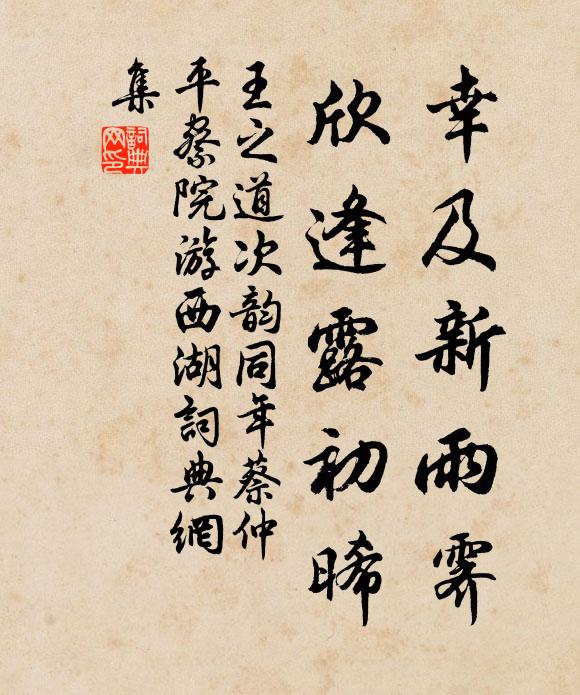 幸及新雨霽
欣逢露初晞
王之道次韵同年蔡仲
平察院游西湖詞典網
集
詞典
网印